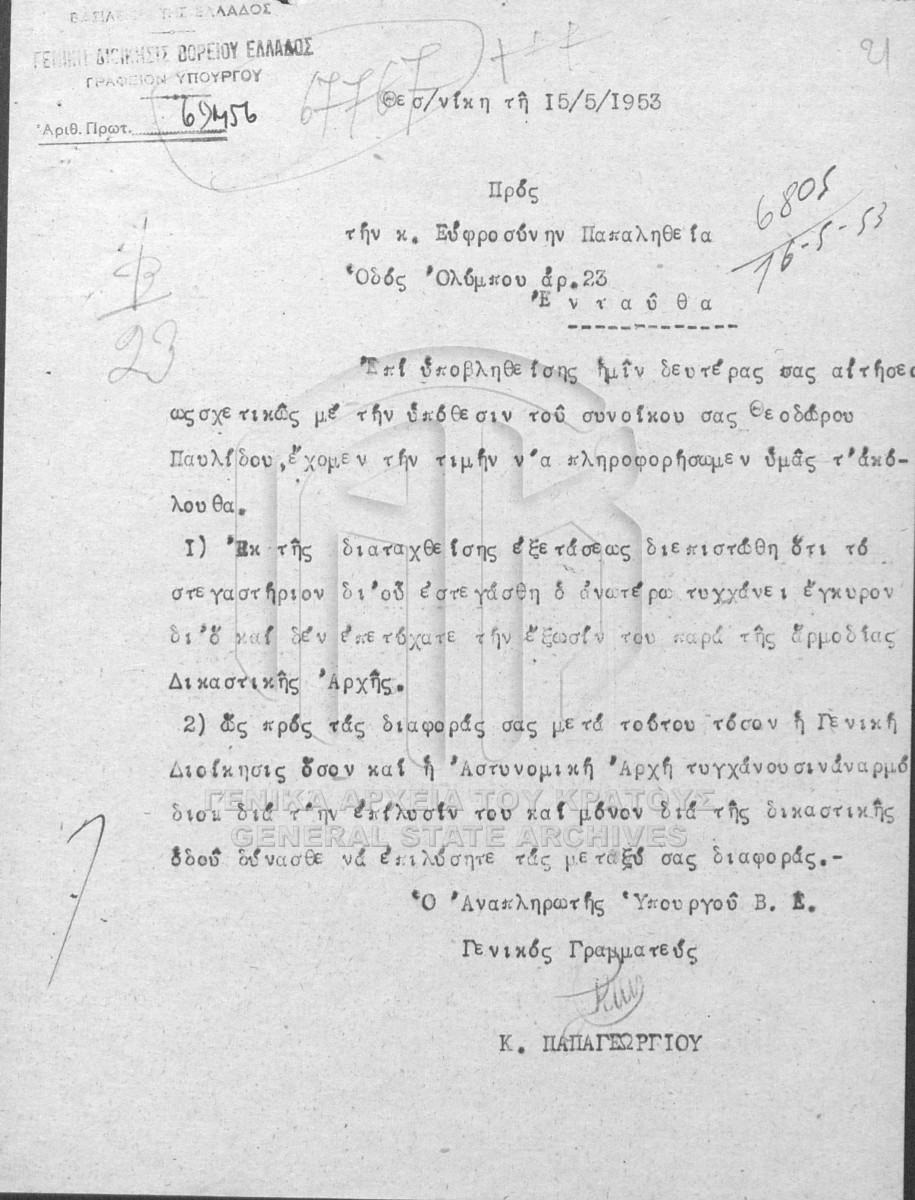 ΒΑΣΙΛΕΙΟΝ ΤΗΣ ΕΛΛΑΔΟΣ
ΓΕΝΙΚΗ ΔΙΟΙΚΗΣΙΣ ΒΟΡΕΙΟΥ ΕΛΛΑΔΟΣ
ΓΡΑΦΕΙΟΝ ΥΠΟΥΡΓΟΥ
67767
21
Θεσ/νίκη τῇ 15/5/1953
Ἀριθ. Πρωτ. 69456
Πρός
6805
τήν κ. Εὐφροσύνην Παπαληθεία
16-5-53
Ὁδός Ὀλύμπου ἀρ.23
Ἐ ν τ α ῦ θ α
23
Ἐπί ὑποβληθείσης ἡμῖν δευτέρας σας αἰτήσε
ωςσχετικῶς μέ τήν ὑπόθεσιν τοῦ συνοίκου σας Θεοδώρου
Παυλίδου,ἔχομεν τήν τιμήν ν'α πληροφορήσωμεν ὑμᾶς τ'ἀκό-
λουθα.
I) Ἐκ τῆς διαταχθείσης ἐξετάσεως διεπιστώθη ὅτι τό
στεγαστήριον δι'οὗ ἐστεγάσθη ὁ ἀνωτέρω τυχχάνει ἔγκυρον
δι'ὅ καί δέν ἐπετύχατε τήν ἔξωσίν του παρά τῆς ἁρμοδίας
Δικαστικῆς Ἀρχῆς.
2) Ὡς πρός τάς διαφοράς σας μετά τούτου τόσον ἡ Γενική
Διοίκησις ὅσον καί ἡ Ἀστυνομική Ἀρχή τυγχάνουσινἀναρμό
διοι διά τ'ην ἐπίλυσίν του καί μόνον διά τῆς δικαστικῆς
ὁδοῦ δύνασθε νά ἐπιλύσητε τάς μεταξύ σας διαφοράς.-
Ὁ Ἀναπληρωτής Ὑπουργοῦ Β. Ε.
Γενικός Γραμματεύς
Κ. ΠΑΠΑΓΕΩΡΓΙΟΥ
ΓΕΝΙΚΑ ΑΡΧΕΙΑ ΤΟΥ ΚΡΑΤΟΥΣ
GENERAL STATE ARCHIVES